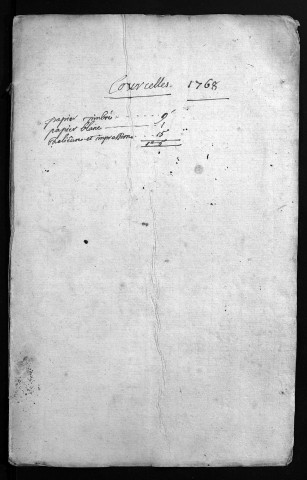 Courcelles. 1768
papier timbré ..... 9ˢ
papier blanc ..... 1 "
Reliure et impression .. 15 "